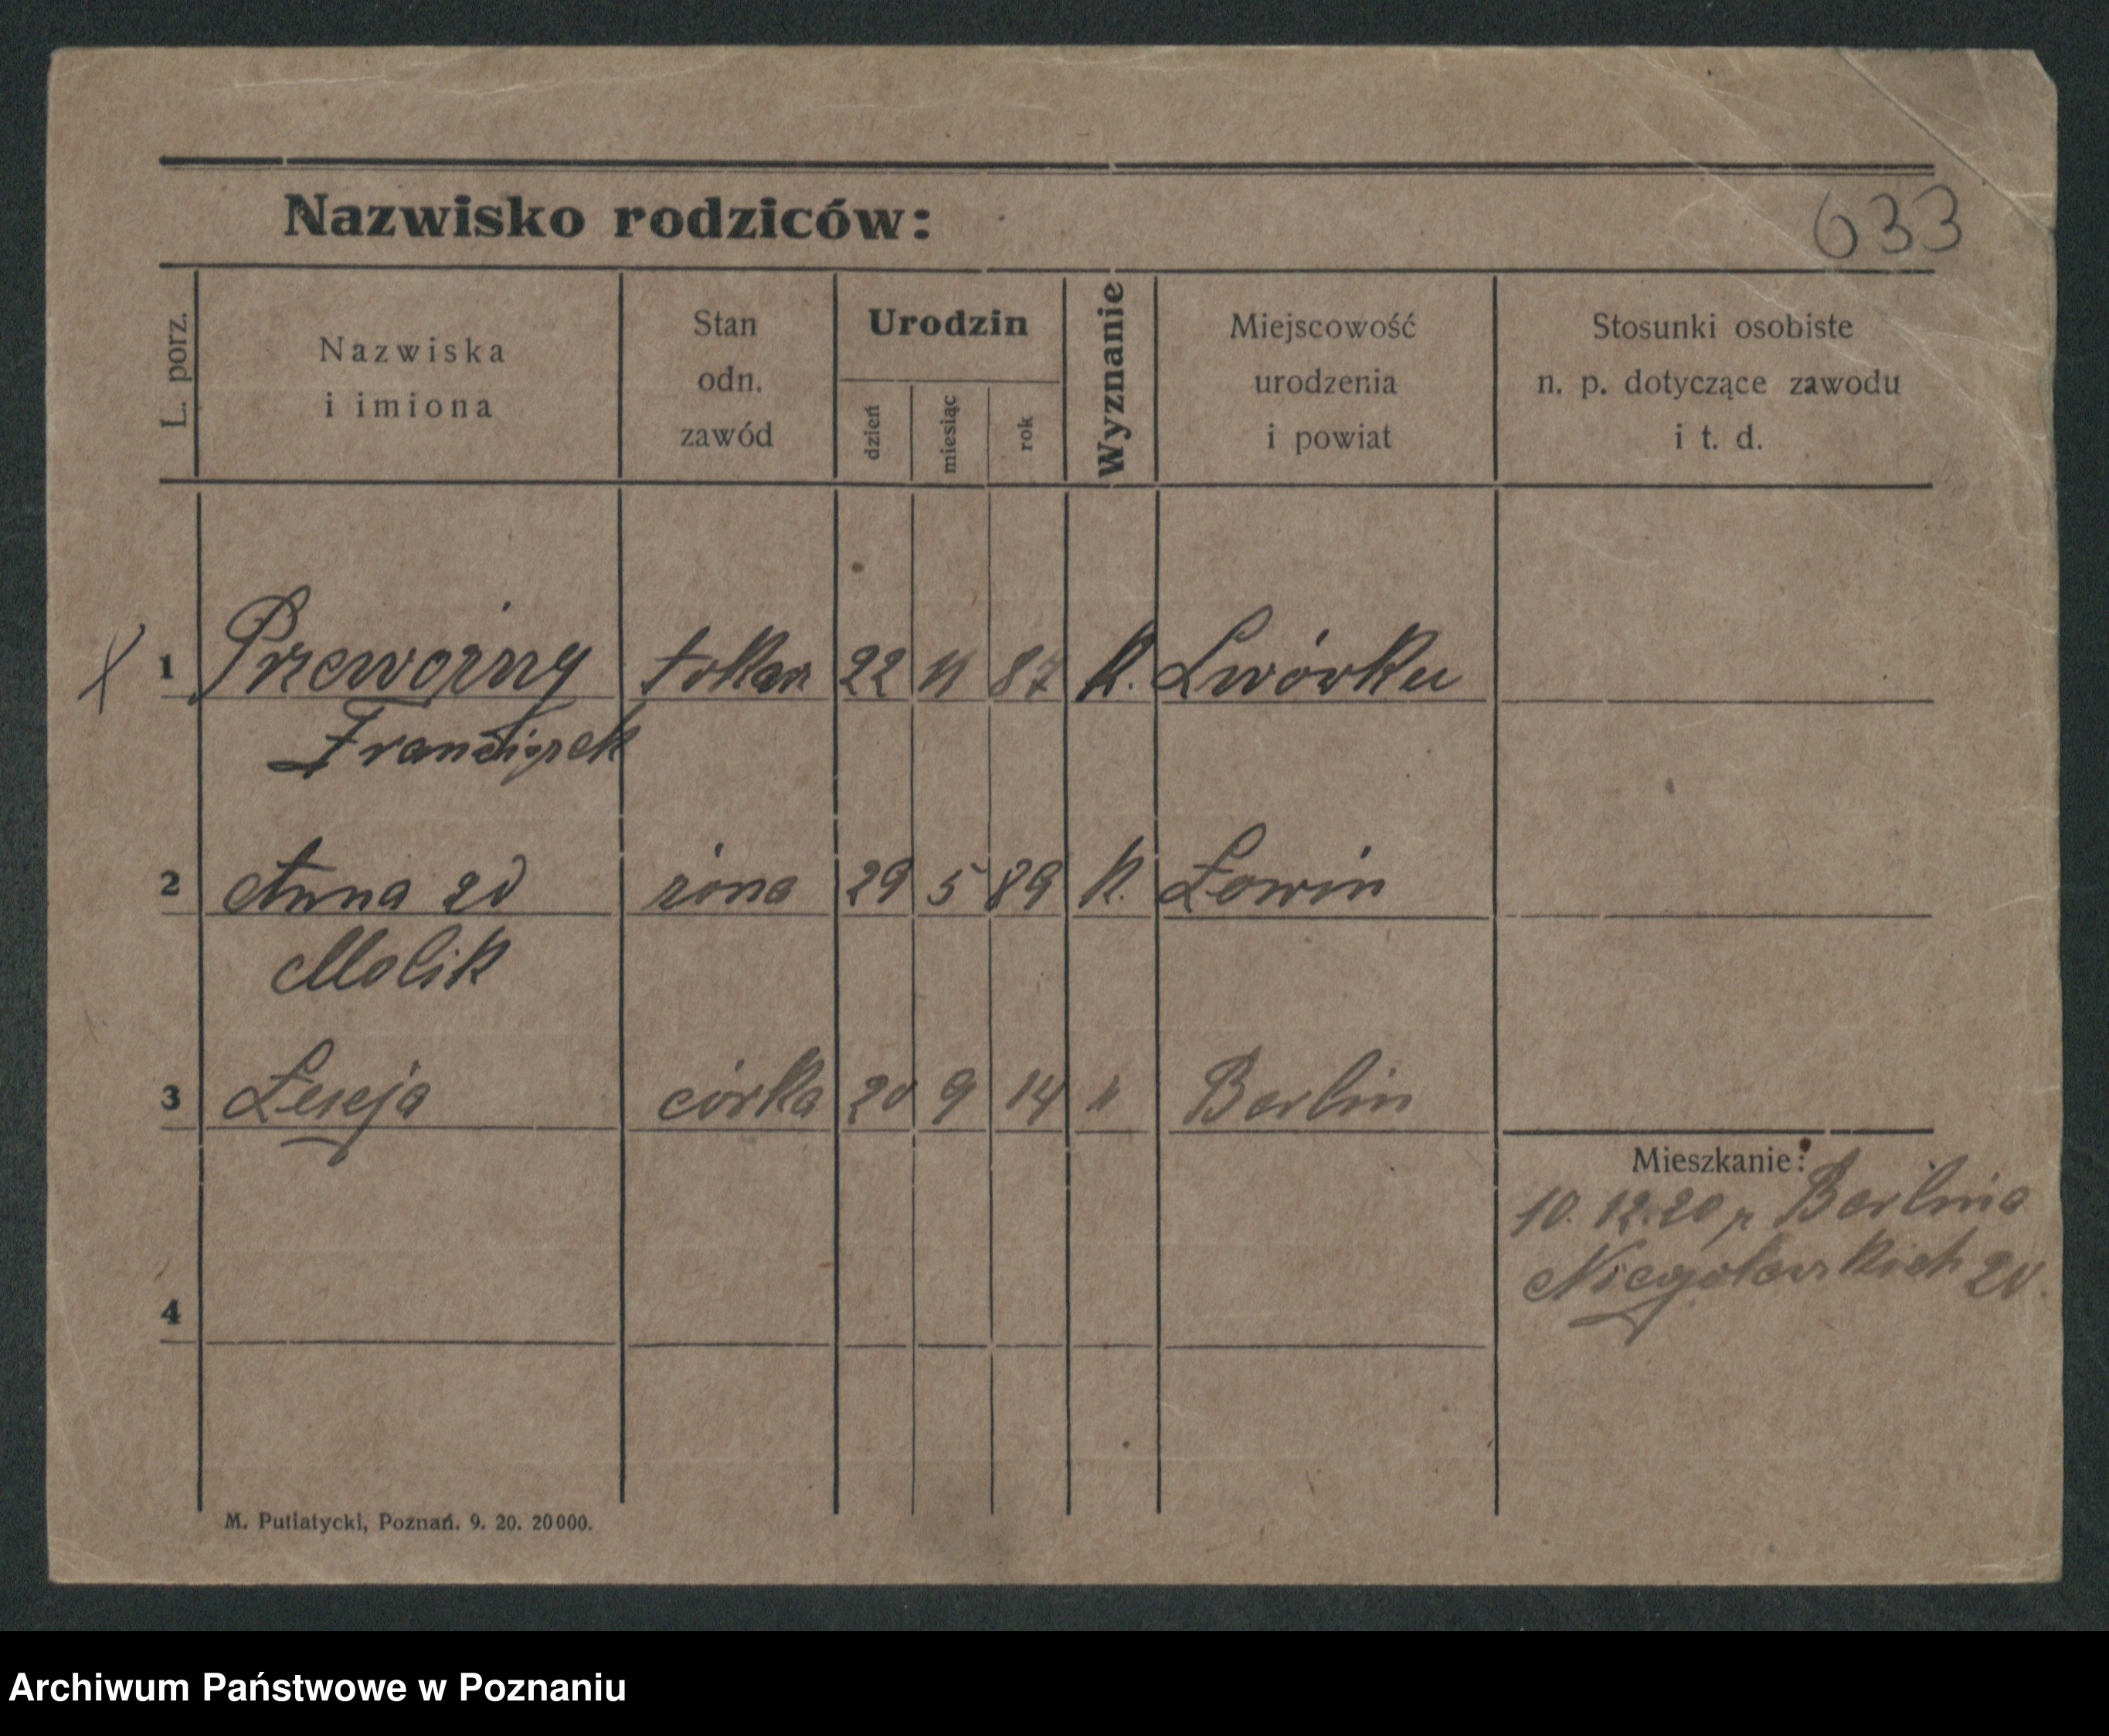 Nazwisko rodziców:
633
L. porz.
Nazwiska
i imiona
Stan
odn.
zawód
Urodzin
dzień
miesiąc
rok
Wyznanie
Miejscowość
urodzenia
i powiat
Stosunki osobiste
n. p. dotyczące zawodu
i t. d.
X 1 Przewoźny tokarz 22 11 87 K. Lwówku
Franciszek
2 Anna żona 29 5 89 K. Łowin
Molik
3 córka 20 9 14 " Berlin
Mieszkanie:
10. 12. 20 z Berlina
Niegolewskich 20.
4
M. Putiatycki, Poznań. 9. 20. 20000.
Archiwum Państwowe w Poznaniu